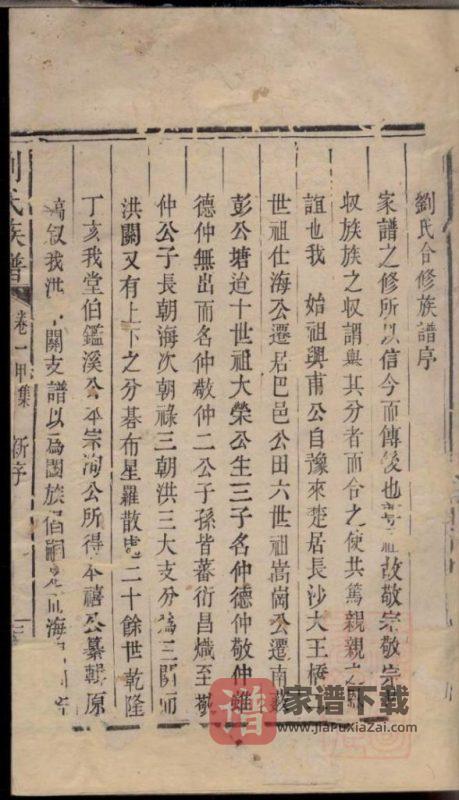 劉氏合修族譜序
家譜之修所以信今而傳後也尊祖故敬宗敬宗
収族族之収謂與其分者而合之使共篤親親之
誼也我 始祖興甫公自豫來楚居長沙大王橋
世祖仕海公遷居巴邑公田六世祖嵩崗公遷南
彭公塘迨十世祖大榮公生三子名仲德仲敬仲雖
德仲無出而名仲敬仲二公子孫皆蕃衍昌熾至敬
仲公子長朝海次朝祿三朝洪三大支分為三關而
洪關又有上下之分碁布星羅散處二十餘世乾隆
丁亥我堂伯鑑溪公本宗洵公所得本禧公纂輯原
稿叙我洪 關支譜以為闔族 海
劉氏族譜 卷一甲集 新序
谱 家谱下载
www.jiaPuXiaZai.com